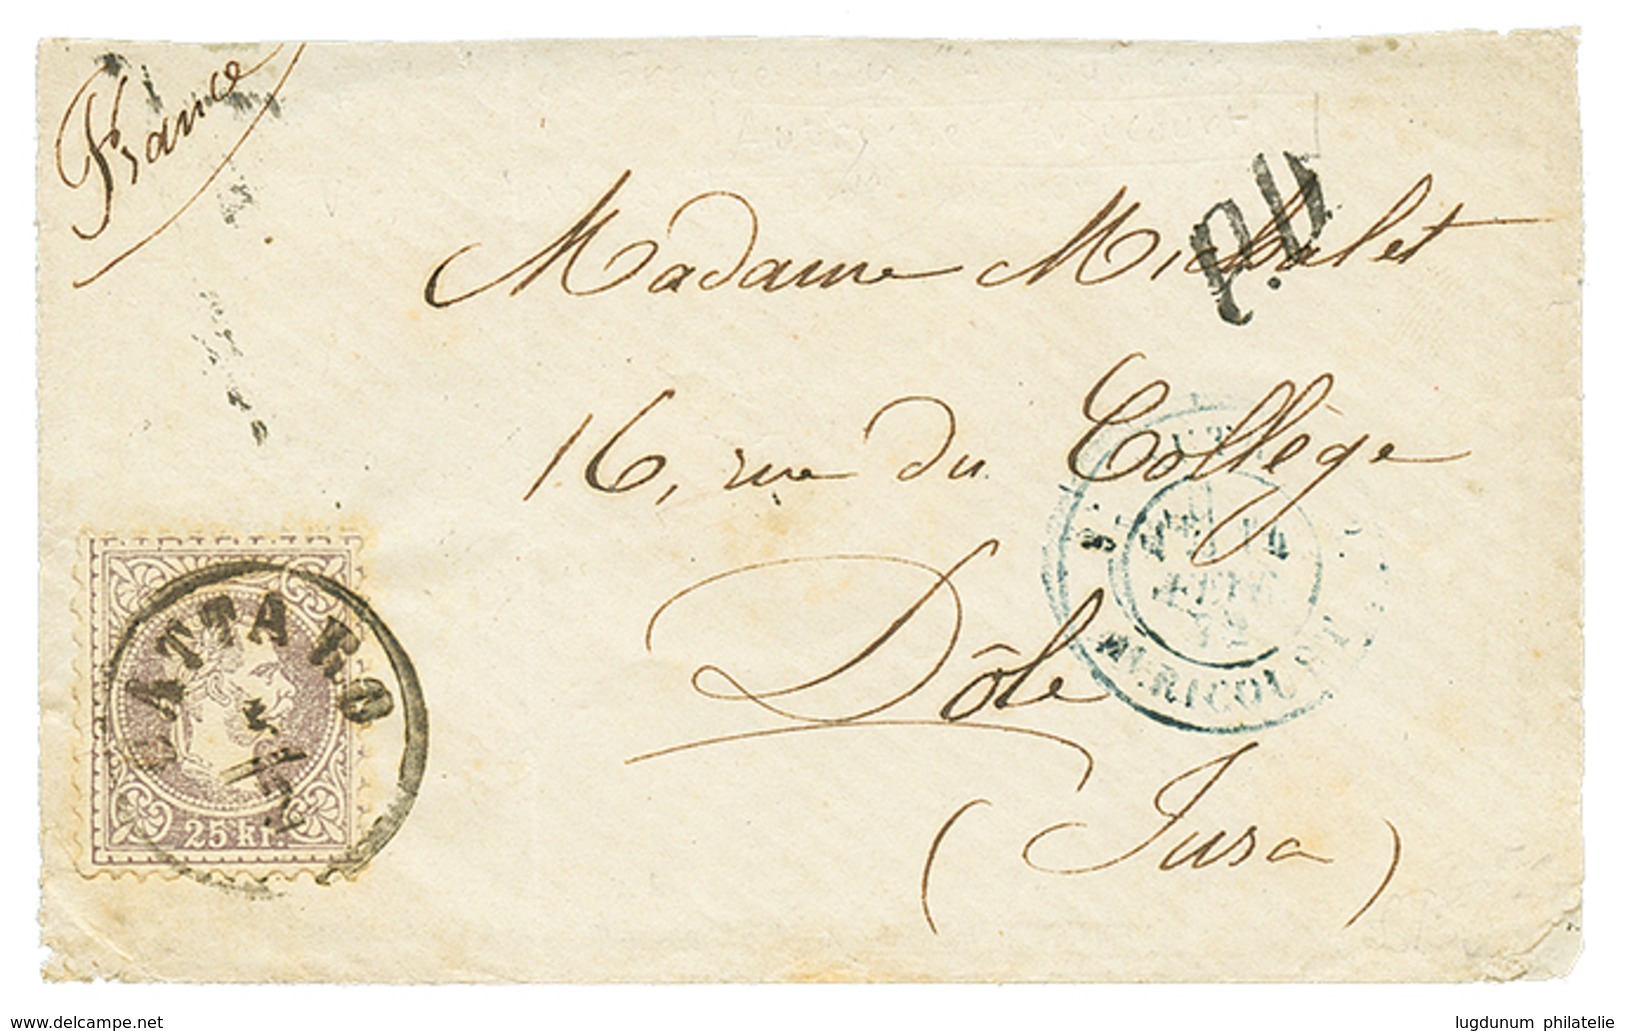 France
P.D.
Madame Michalet
16, rue du Collège
Dôle
(Jura)
CATTARO
25 kr.
AVRICOURT
www.delcampe.net
lugdunum philatelie